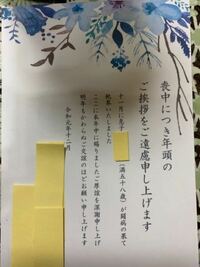 喪中につき年頭の
ご挨拶をご遠慮申し上げます
十一月に息子
(満五十八歳)が闘病の果て
他界いたしました
ここに本年中に賜りましたご厚誼を深謝申し上げ
明年もかわらぬご交誼のほどお願い申し上げます
令和元年十二月